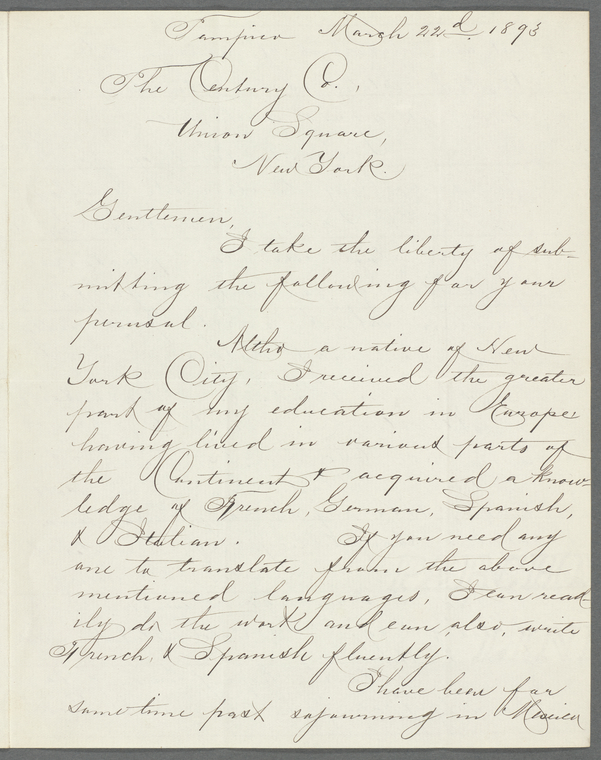 Tampico March 22d. 1893
The Century Co.,
Union Square,
New York.
Gentlemen,
I take the liberty of sub-
mitting the following for your
perusal.
Altho a native of New
York City, I received the greater
part of my education in Europe
having lived in various parts of
the Continent & acquired a know-
ledge of French, German, Spanish,
& Italian. If you need any
one to translate from the above
mentioned languages, I can read
ily do the work and can, also, write
French, & Spanish fluently.
I have been for
some time past sojourning in Mexico